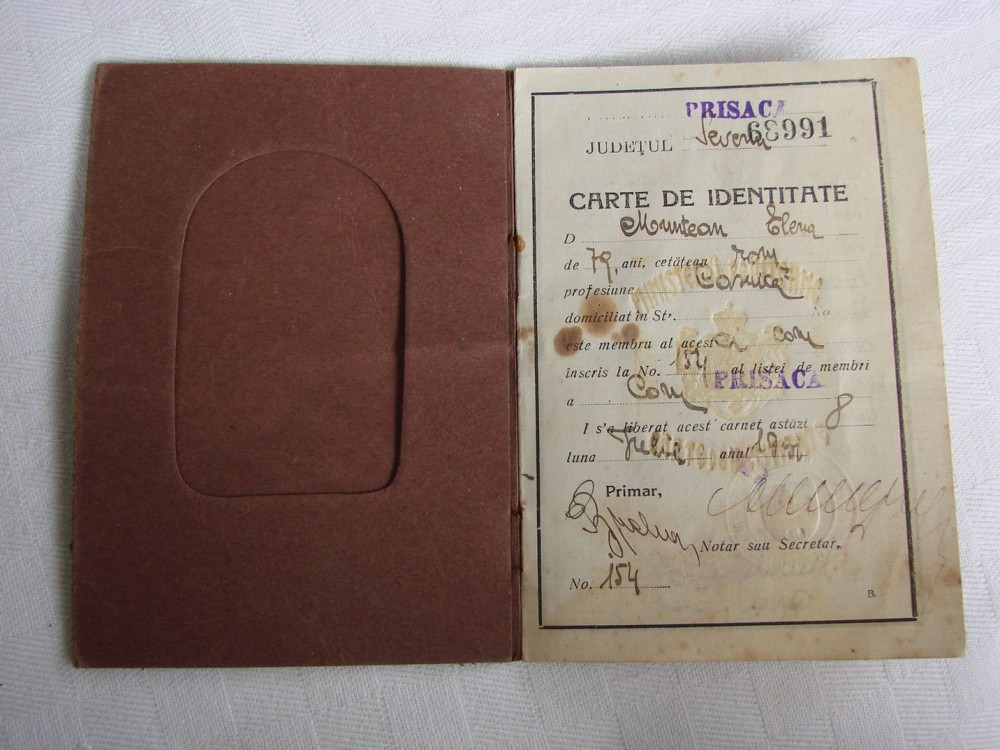 PRISACA
68991
JUDEŢUL Severin
CARTE DE IDENTITATE
D Muntean Elena
de 79, ani, cetăţean rom
profesiune Casnică
domiciliat în Str. No
este membru al acest com
înscris la No. 154 al listei de membri
PRISACA
a Com
I s'a liberat acest carnet astăzi 8
luna Iulie anul
Primar,
Notar sau Secretar,
No. 154
B.